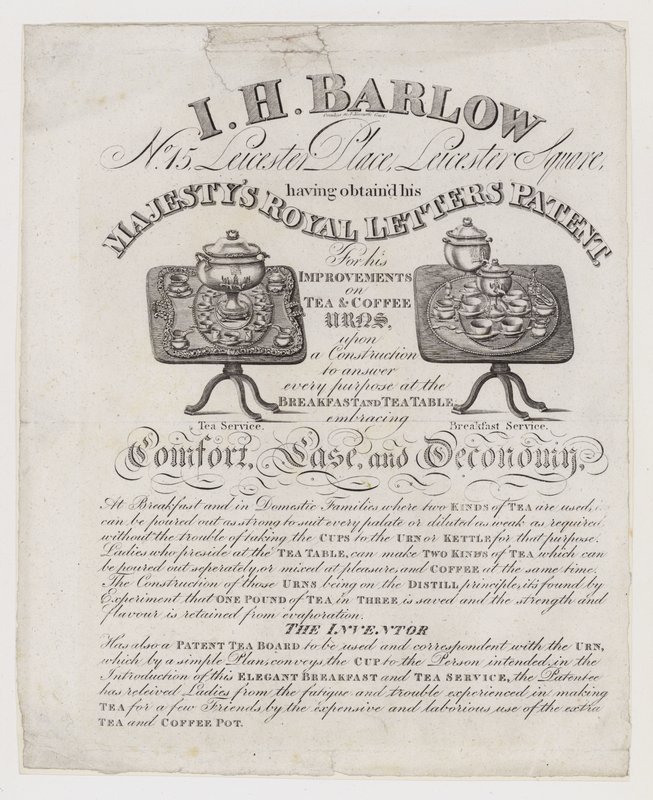 I. H. BARLOW
No. 15, Leicester Place, Leicester Square,
having obtain'd his
MAJESTY'S ROYAL LETTERS PATENT,
For his
IMPROVEMENTS
on
TEA & COFFEE
URNS,
upon
a Construction
to answer
every purpose at the
BREAKFAST AND TEA TABLE,
embracing
Tea Service.
Breakfast Service.
Comfort, Ease, and Oeconomy,
At Breakfast and in Domestic Families where two KINDS of TEA are used,
can be poured out as strong to suit every palate or diluted as weak as required
without the trouble of taking the CUPS to the URN or KETTLE for that purpose.
Ladies who preside at the TEA TABLE, can make TWO KINDS of TEA which can
be poured out seperately, or mixed at pleasure, and COFFEE at the same time.
The Construction of those URNS being on the DISTILL principle, its found by
Experiment that ONE POUND of TEA in THREE is saved and the strength and
flavour is retained from evaporation.
THE INVENTOR
Has also a PATENT TEA BOARD to be used and correspondent with the URN,
which by a simple Plan, conveys the CUP to the Person intended, in the
Introduction of this ELEGANT BREAKFAST and TEA SERVICE, the Patentee
has releived Ladies from the fatigue and trouble experienced in making
TEA for a few Friends, by the expensive and laborious use of the extra
TEA and COFFEE POT.